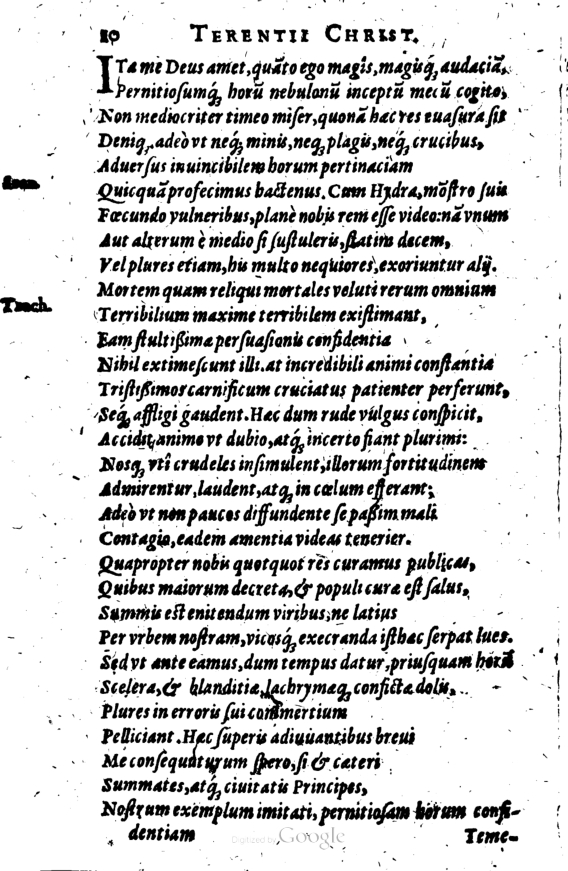 20 TERENTII CHRIST.
ITa me Deus amet, quãto ego magis, magisq́; audaciã,
Pernitiosumq́; horũ nebulonũ inceptũ mecũ cogito,
Non mediocriter timeo miser, quonã hæc res euasura sit
Deniq;, adeò vt neq́; minis, neq; plagis, neq́; crucibus,
Aduersus inuincibilem horum pertinaciam
Quicquã profecimus hactenus. Cum Hydra, mõstro suis
Fœcundo vulneribus, planè nobis rem esse video: nã vnum
Aut alterum è medio si sustuleris, statim decem,
Vel plures etiam, his multo nequiores, exoriuntur alij.
Trach.
Mortem quam reliqui mortales veluti rerum omnium
Terribilium maxime terribilem existimant,
Eam stultißima persuasionis confidentia
Nihil extimescunt illi. at incredibili animi constantia
Tristißimos carnificum cruciatus patienter perferunt,
Seq́; affligi gaudent. Hæc dum rude vulgus conspicit,
Accidit, animo vt dubio, atq́; incerto fiant plurimi:
Nosq; vti crudeles insimulent, illorum fortitudinem
Admirentur, laudent, atq; in cœlum efferant;
Adeò vt non paucos diffundente se paßim mali
Contagio, eadem amentia videas tenerier.
Quapropter nobis quotquot res curamus publicas,
Quibus maiorum decreta, & populi curæ est salus,
Summis est enitendum viribus, ne latius
Per vrbem nostram, vicosq́; execranda isthæc serpat lues.
Sed vt ante eamus, dum tempus datur, priusquam horũ
Scelera, & blanditiæ, lachrymæq; confictæ dolis,
Plures in erroris sui commertium
Pelliciant. Hæc superis adiuuantibus breui
Me consequuturum spero, si & cæteri
Summates, atq́; ciuitatis Principes,
Nostrum exemplum imitati, pernitiosam horum confi-
dentiam
Teme-
Digitized by Google